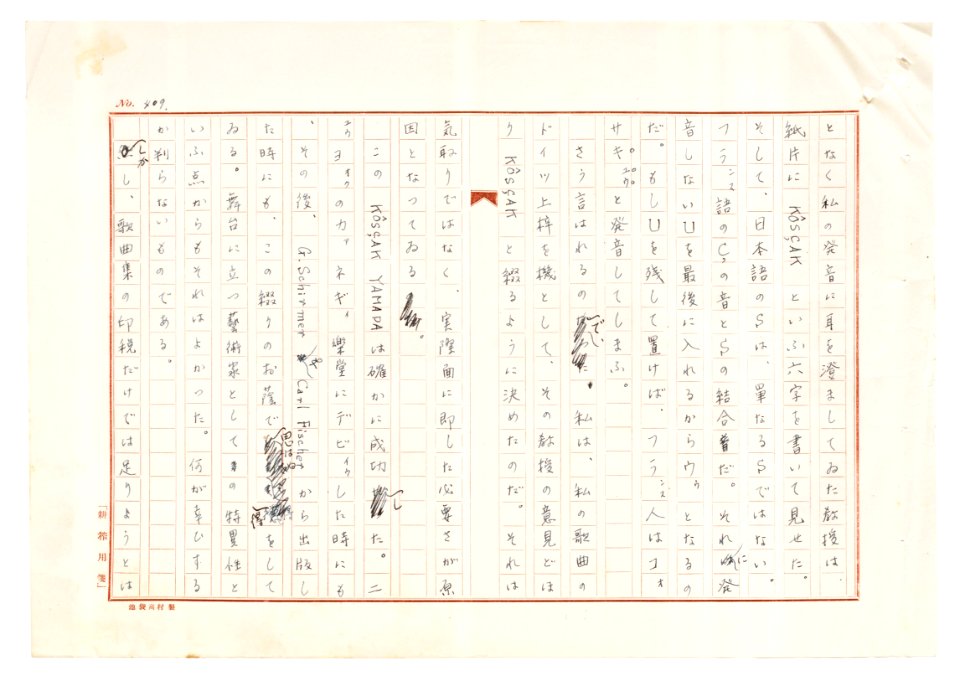 No. 409.
となく私の発音に耳を澄ましてゐた教授は、
紙片に KôSÇAK といふ六字を書いて見せた。
そして、日本語のSは、単なるSではない。
フランス語のÇの音とSの結合だ。それに発
音しないUを最後に入れるからウゥとなるの
だ。もしUを残して置けば、フランス人はコォ
サキュウと発音してしまふ。
さう言はれるので、私は、私の歌曲の
ドイツ上梓を機として、その教授の意見どほ
り KôSÇAK と綴るように決めたのだ。それは
気取りではなく、実際面に即した必要さが原
因となつてゐる。
この KôSÇAK YAMADA は確かに成功した。ニ
ユウヨオクのカァネギィ楽堂にデビィウした時にも
、その後、G. Schirmer や Carl Fischer から出版し
た時にも、この綴りのお蔭で思はぬ得をして
ゐる。舞台に立つ藝術家としての特異性と
いふ点からもそれはよかつた。何が幸ひする
か判らないものである。
しかし、歌曲集の印税だけでは足りようとは
「耕筰用箋」
池袋西村製